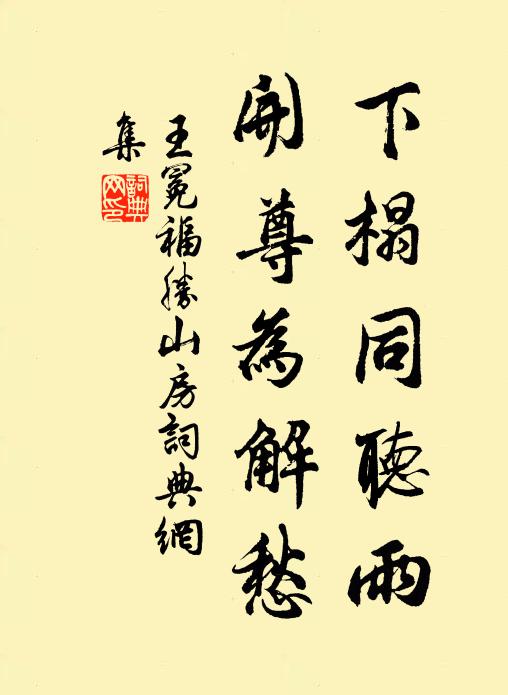 下榻同聽雨
開尊為解愁
王冕福勝山房詞典網
集
詞典
網印